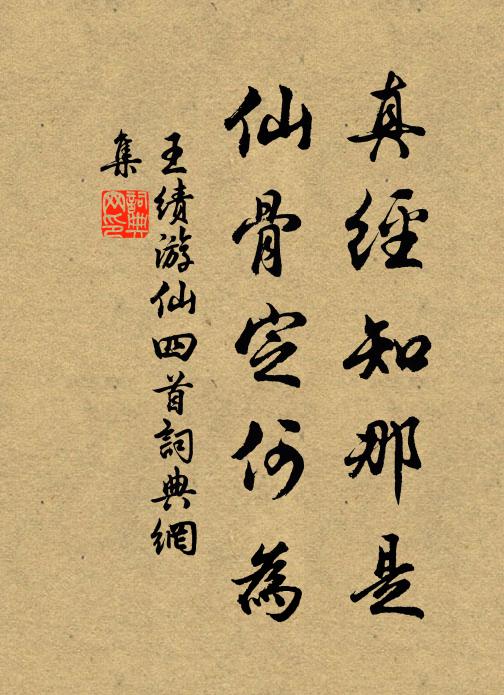 真經知那是
仙骨定何為
王績游仙四首詞典網
集
詞典
网印